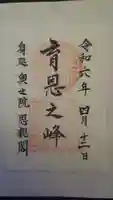 令和六年 四月十三日
育恩之峰
身延 奥之院 思親閣